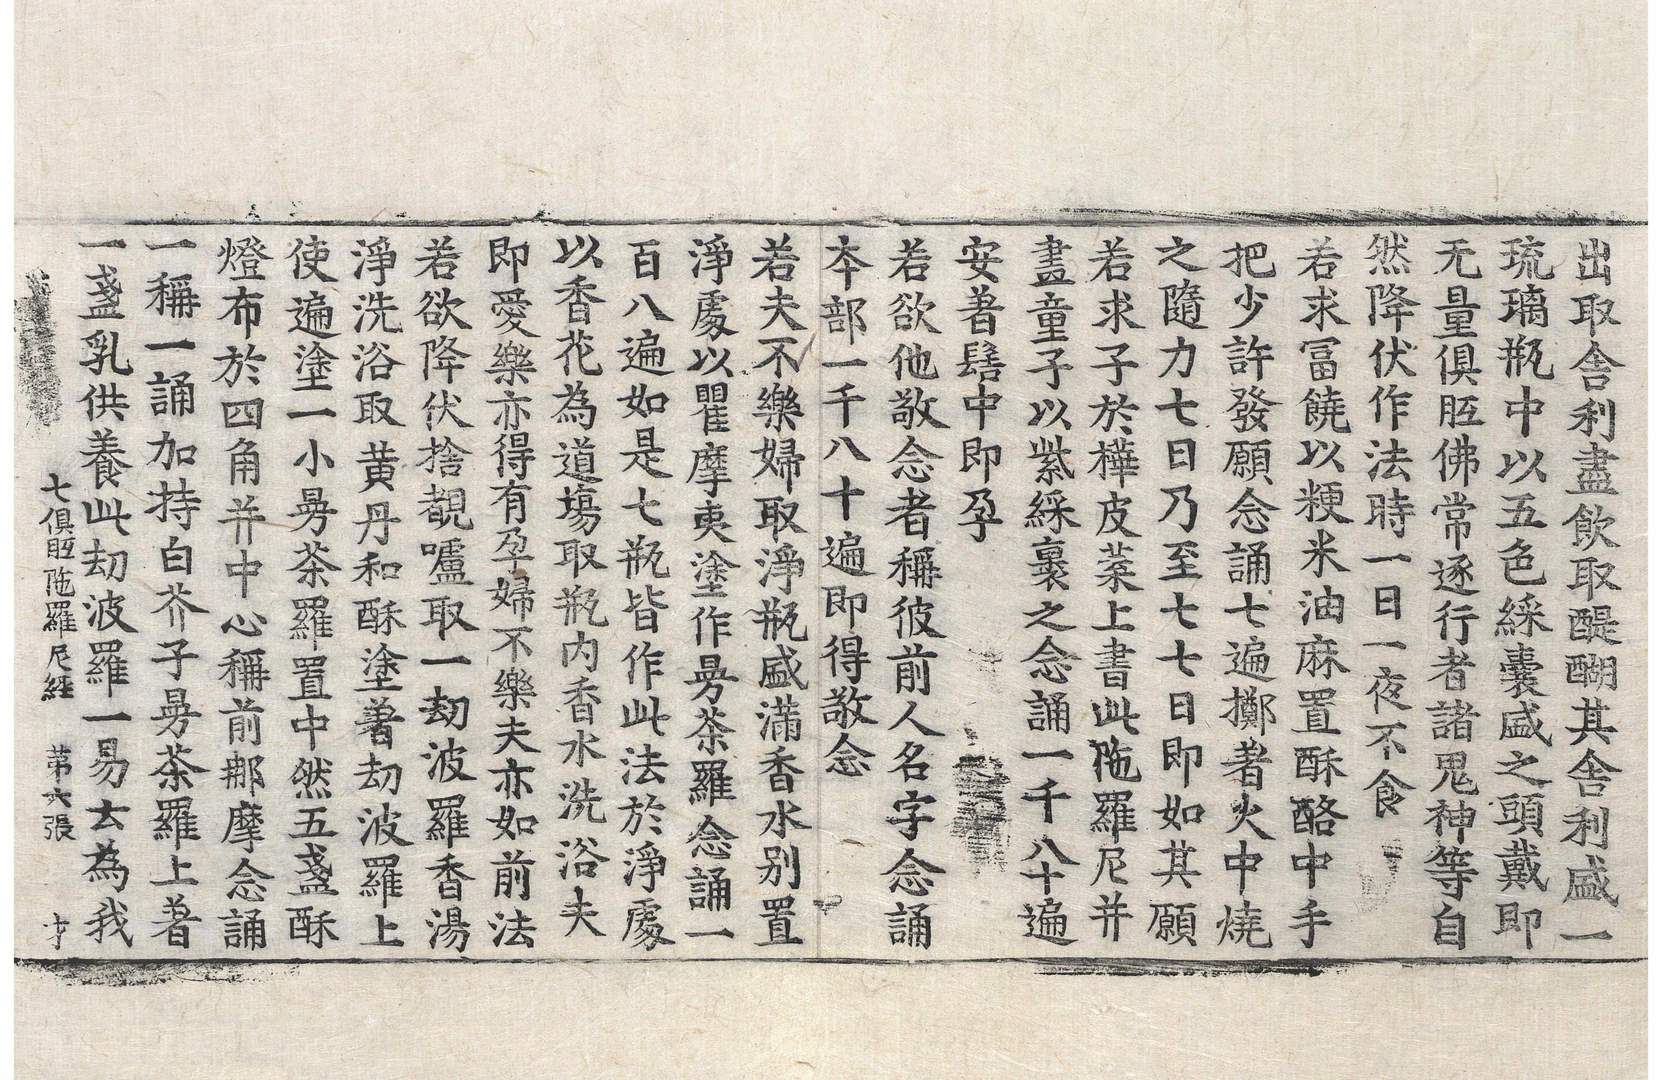 出取舍利盡飲取醍醐其舍利盛一
琉璃瓶中以五色綵囊盛之頭戴即
无量俱胝佛常逐行者諸鬼神等自
然降伏作法時一日一夜不食
若求冨饒以粳米油麻置酥酪中手
把少許發願念誦七遍擲著火中燒
之隨力七日乃至七七日即如其願
若求子於樺皮葉上書此陁羅尼并
畫童子以紫綵裹之念誦一千八十遍
安著髻中即孕
若欲他敬念者稱彼前人名字念誦
本部一千八十遍即得敬念
若夫不樂婦取淨瓶盛滿香水別置
淨處以瞿摩夷塗作曼茶羅念誦一
百八遍如是七瓶皆作此法於淨處
以香花為道場取瓶内香水洗浴夫
即愛樂亦得有孕婦不樂夫亦如前法
若欲降伏捨覩嚧取一劫波羅香湯
淨洗浴取黄丹和酥塗著劫波羅上
使遍塗一小曼茶羅置中然五盞酥
燈布於四角并中心稱前那摩念誦
一稱一誦加持白芥子曼茶羅上著
一盞乳供養此劫波羅一易去為我
七俱胝陁羅尼經 苐六張 才